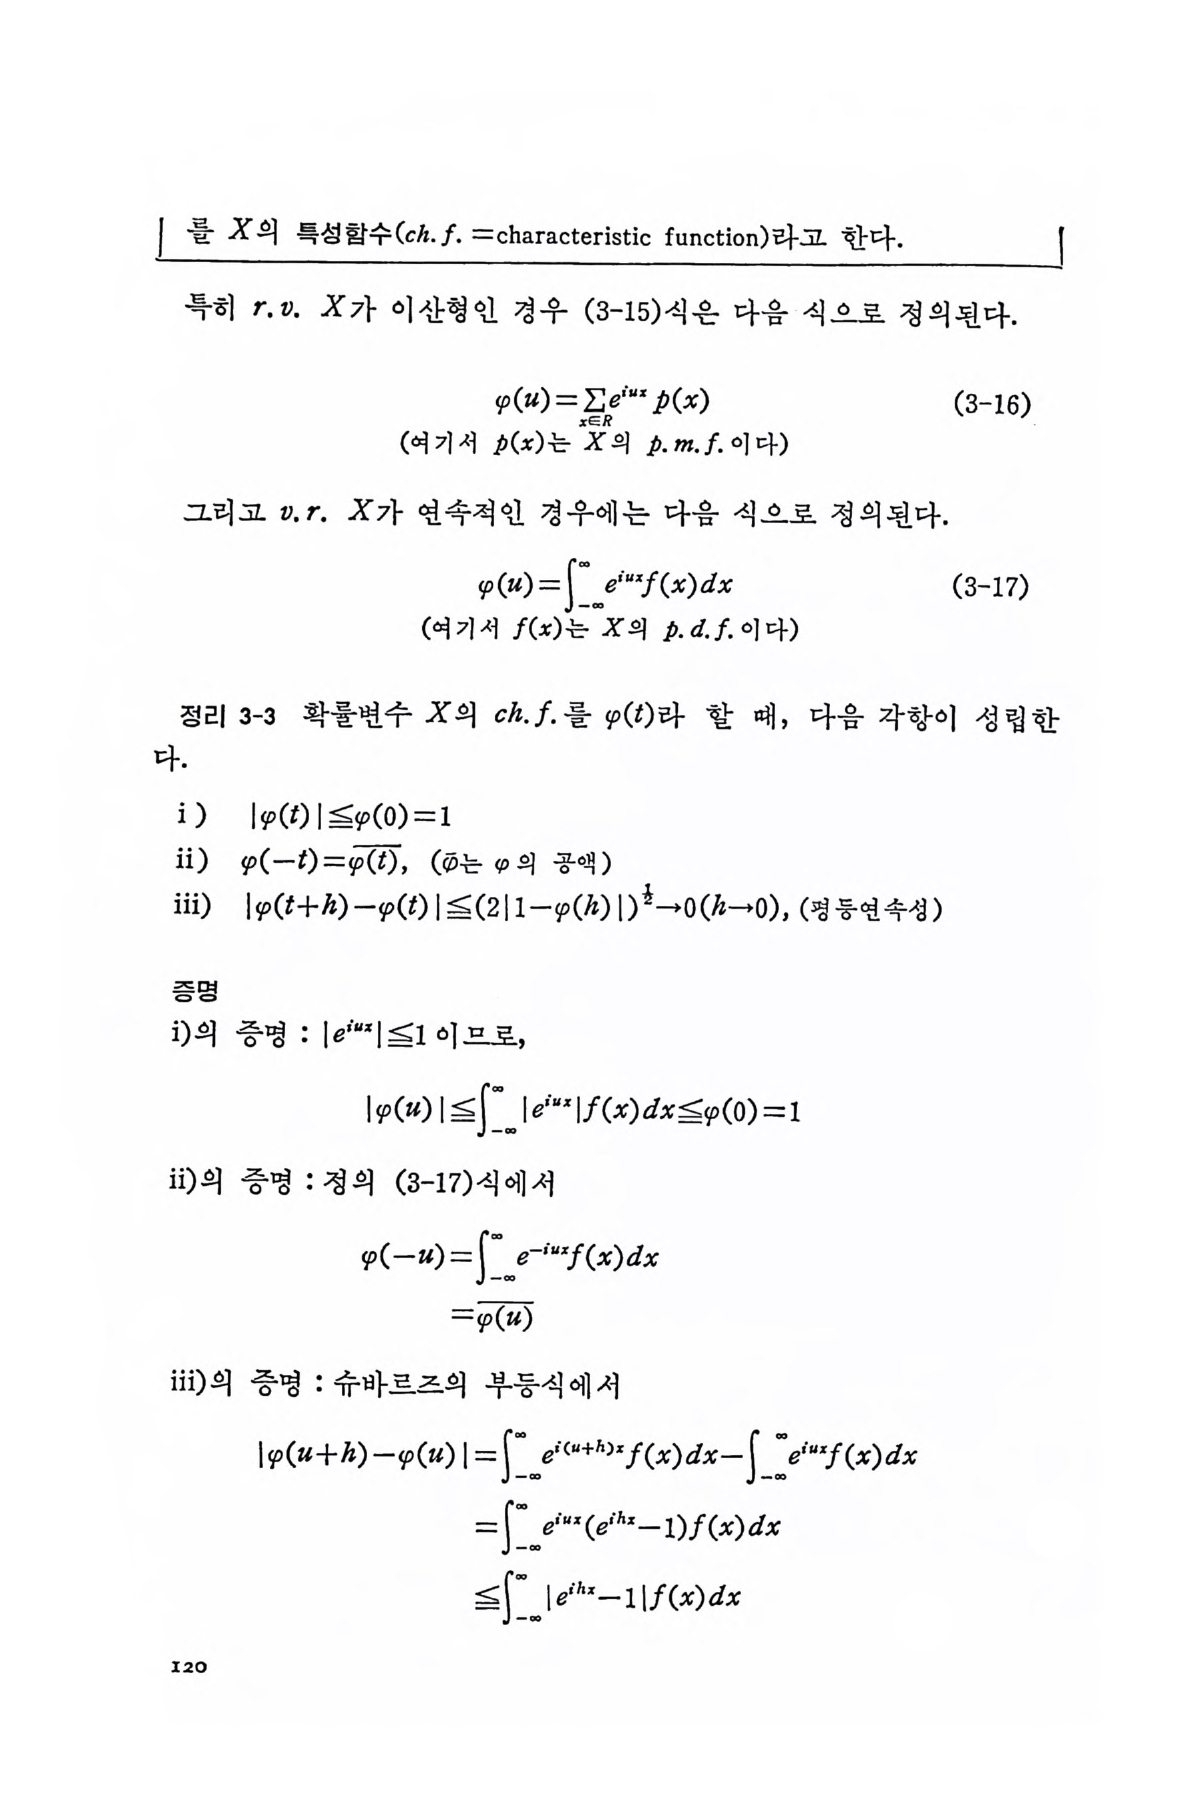 를 X의 특성함수(ch. f. =characteristic function)라고 한다.
특히 r. v. X가 이산형인 경우 (3-15)식은 다음 식으로 정의된다.
φ(u)=∑_{x∈R} e^{iux} p(x) (3-16)
(여기서 p(x)는 X의 p. m. f. 이다)
그리고 v. r. X가 연속적인 경우에는 다음 식으로 정의된다.
φ(u)=∫_{-∞}^{∞} e^{iux}f(x)dx (3-17)
(여기서 f(x)는 X의 p. d. f. 이다)
정리 3-3 확률변수 X의 ch. f. 를 φ(t)라 할 때, 다음 각항이 성립한
다.
i) |φ(t)|≦φ(0)=1
ii) φ(−t)=\overline{φ(t)}, (φ̄는 φ의 공액)
iii) |φ(t+h)−φ(t)|≦(2|1−φ(h)|)^{1/2}→0(h→0), (평등연속성)
증명
i)의 증명 : |e^{iux}|≦1 이므로,
|φ(u)|≦∫_{-∞}^{∞} |e^{iux}|f(x)dx≦φ(0)=1
ii)의 증명 : 정의 (3-17)식에서
φ(−u)=∫_{-∞}^{∞} e^{−iux}f(x)dx
=\overline{φ(u)}
iii)의 증명 : 슈바르즈의 부등식에서
|φ(u+h)−φ(u)|=∫_{-∞}^{∞} e^{i(u+h)x}f(x)dx−∫_{-∞}^{∞} e^{iux}f(x)dx
=∫_{-∞}^{∞} e^{iux}(e^{ihx}−1)f(x)dx
≦∫_{-∞}^{∞} |e^{ihx}−1|f(x)dx
120